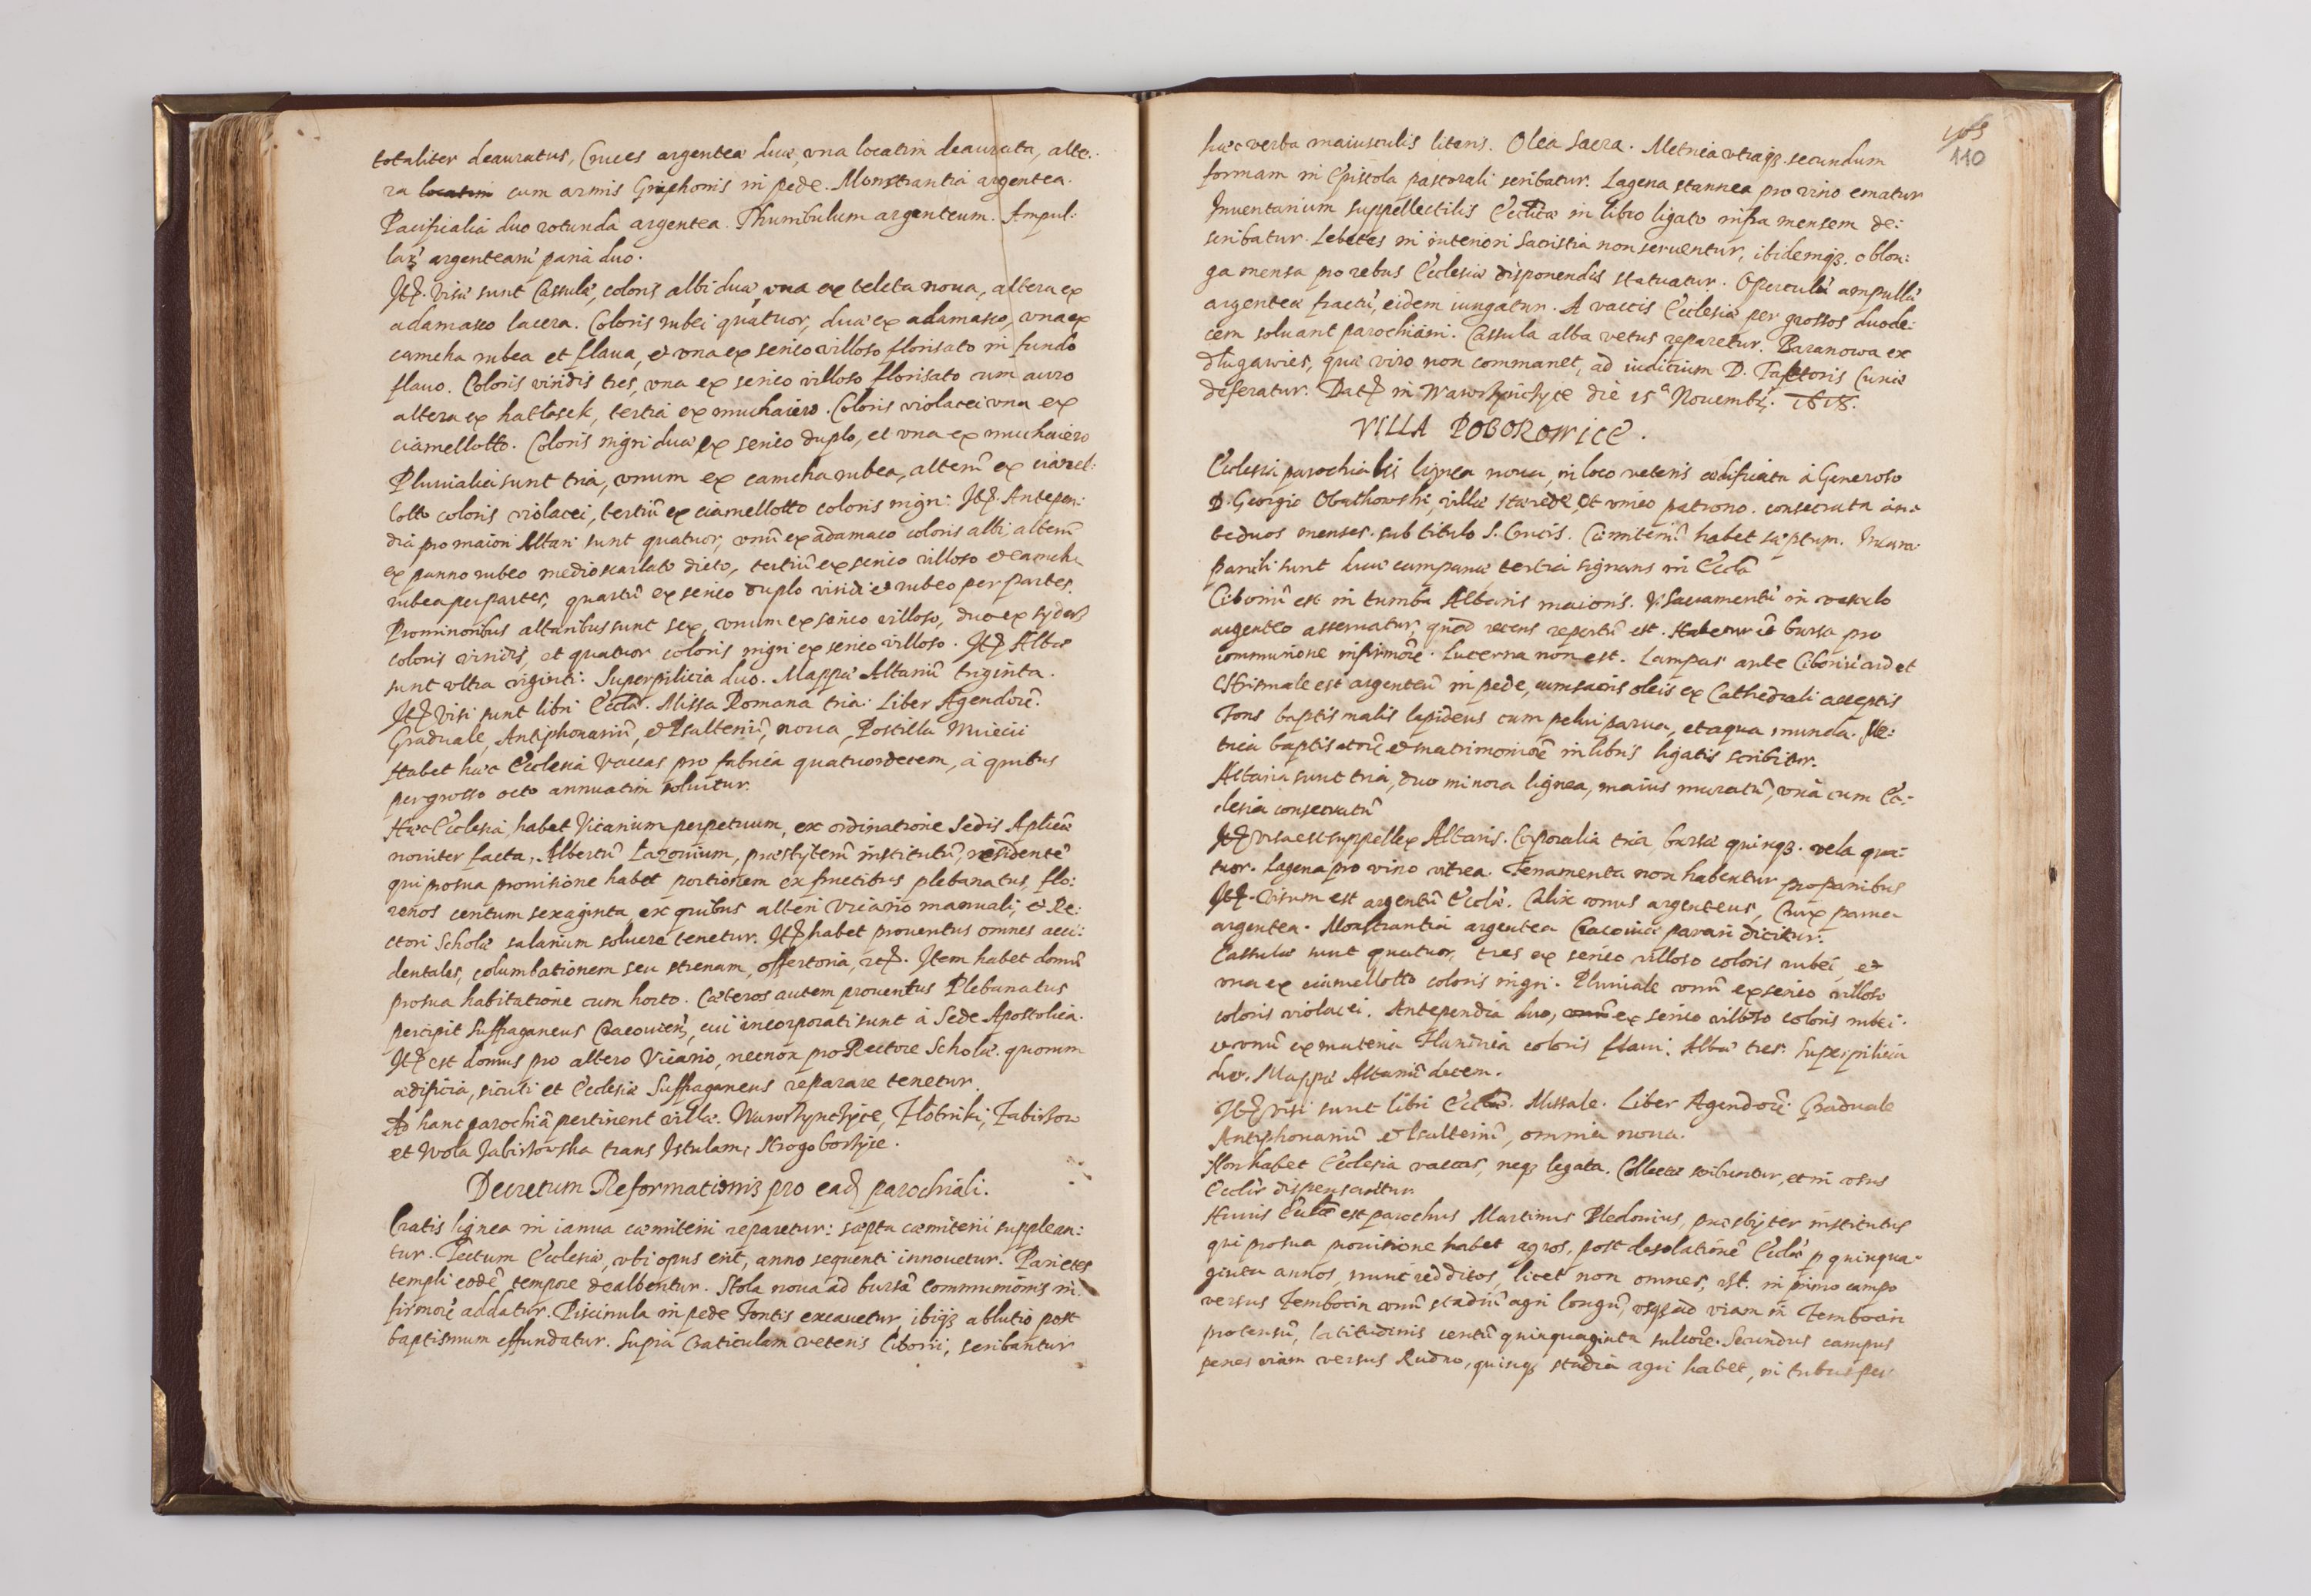 totaliter deauratus, Cruces argenteæ duæ, vna locatim deaurata, alte:
ra locatim cum armis Griphonis in pede. Monstrantia argentea.
Pacificalia duo rotunda argentea. Thuribulum argenteum. Ampul:
larũ argentearũ paria duo.
Itẽ. Visæ sunt Casulæ, coloris albi duæ, vna ex teleta noua, altera ex
adamasco lacera. Coloris rubei quatuor, duæ ex adamasco, vna ex
camcha rubea et flaua, et vna ex serico villoso florisato in fundo
flauo. Coloris viridis tres, vna ex serico villoso florisato cum auro
altera ex hatłasek, tertia ex muchaiero. Coloris violacei vna ex
ciamellotto. Coloris nigri duæ ex serico duplo, et vna ex muchaiero
Pluuialia sunt tria, vnum ex camcha rubea, alterũ ex ciamel:
lotto coloris violacei, tertiũ ex ciamellotto coloris nigri. Itẽ. Antepen:
dia pro maiori Altari sunt quatuor, vnũ ex adamasco coloris albi, alterũ
ex panno rubeo medioscarlato dicto, tertiũ ex serico villoso et camcha
rubea per partes, quartũ ex serico duplo viridi et rubeo per partes.
Pro minoribus altaribus sunt sex, vnum ex serico villoso, duo ex
coloris viridis, et quatuor coloris nigri ex serico villoso. Itẽ Albæ
sunt vltra viginti. Superpilicia duo. Mappæ Altariũ triginta.
Itẽ Visi sunt libri Eccłæ. Missa Romana tria. Liber Agendorũ.
Graduale, Antiphonariũ, et Psalteriũ, noua, Postilla Wuiecii
Habet hæc Ecclesia Vaccas pro fabrica quatuordecem, à quibus
per grosso octo annuatim soluitur.
Hæc Ecclesia habet Vicarium perpetuum, ex ordinatione Sedis Aplicæ
nouiter facta, Albertũ Lazonium, præsbyterũ institutũ, residentẽ
qui pro sua prouisione habet portionem ex fructibus plebanatus, flo:
renos centum sexaginta, ex quibus alteri Vicario manuali, et Re:
ctori Scholæ salarium soluere tenetur. Itẽ habet prouentus omnes acci:
dentales, columbationem seu strenam, offertoria, etc. Item habet domũ
pro sua habitatione cum horto. Cæteros autem prouentus Plebanatus
percipit Suffraganeus Cracouien, cui incorporati sunt à Sede Apostolica.
Itẽ est domus pro altero Vicario, necnon pro Rectore Scholæ. quorum
ædificia, sicuti et Ecclesiæ Suffraganeus reparare tenetur.
Ad hanc parochiã pertinent villæ. Wawrzynczyce, Złotniki,
et Wola trans Istulam, Strogoborzyce.
Decretum Reformationis pro eadẽ parochiali.
Cratis lignea in ianua cœmiterii reparetur: sæpta cœmiterii supplean:
tur. Tectum Ecclesiæ, vbi opus erit, anno sequenti innouetur. Parietes
templi eodẽ tempore dealbentur. Stola noua ad bursã Communionis in:
firmorũ addatur. Piscinula in pede Fontis excauetur, ibiqȝ ablutio post
baptismum effundatur. Supra Craticulam veteris Ciborii, scribantur
110
hæc verba maiusculis literis. Olea Sacra. Metrica vtraqȝ. secundum
formam in Epistola pastorali scribatur. Lagena stannea pro vino ematur
Inuentarium suppellectilis Ecclicæ in libro ligato infra mensem de:
scribatur. Lebetes in interiori Sacristia non seruentur, ibidemqȝ. oblon:
ga mensa pro rebus Ecclesiæ disponendis statuatur. Operculũ ampullæ
argenteæ fractũ, eidem iungatur. A vaccis Ecclesiæ per grossos duode:
cem soluant parochiani. Cassula alba vetus reparetur. Baranowa ex
długawies, quæ viro non commanet, ad iudicium D. Pastoris Curiæ
deferatur. Datẽ in Wawrzynczyce die 15ᵃ Nouembr. 1618.
VILLA POBOROWICE.
Ecclesia parochialis lignea noua, in loco veteris ædificata à Generoso
D. Georgio villæ hærede, et vnico patrono. consecrata an:
te duos menses. sub titulo S. Crucis. Cœmiteriũ habet sæptum. In cam:
panili sunt duæ campanæ, tertia signans in Eccłã
Ciboriũ est in tumba Altaris maioris. Vs Sacramentũ in vasculo
argenteo asseruatur, quod recens repertũ est. Habetur et bursa pro
communione infirmorũ. Lucerna non est. Lampas ante Ciboriũ ardet
Chrismale est argenteũ in pede, cum sacris oleis ex Cathedrali acceptis
Fons baptismalis lapideus cum pelui parua, et aqua munda. Me:
trica baptisatorũ et matrimoniorũ in libris ligatis scribitur.
Altaria sunt tria, duo minora lignea, maius muratũ, vna cum Ec:
clesia consecratũ
Itẽ visa est suppellex Altaris. Corporalia tria, bursæ quinqȝ. vela qua:
tuor. Lagena pro vino vitrea. Ferramenta non habentur pro panibus
Itẽ. Visum est argentũ Eccłæ. Calix vnus argenteus, Crux parua
argentea. Monstrantia argentea Cracouiæ parari dicitur.
Cassulæ sunt quatuor, tres ex serico villoso coloris rubei, et
vna ex ciamellotto coloris nigri. Pluuiale vnũ ex serico villoso
coloris violacei. Antependia duo, vnũ ex serico villoso coloris rubei.
et vnũ ex materia coloris flaui. Albæ tres. Superpilicia
duo. Mappæ Altariũ decem.
Itẽ visi sunt libri Eccłæ. Missale. Liber Agendorũ. Graduale
Antiphonariũ et Psalteriũ, omnia noua.
Non habet Ecclesia vaccas, neqȝ legata. Collectæ scribuntur, et in vsus
Eccłæ dispensantur.
Huius Eccłæ est parochus Martinus Pledonius, præsbyter institutus
qui pro sua prouisione habet agros, post desolationẽ Eccłæ p quinqua:
ginta annos, nunc redditos, licet non omnes, vst. in primo campo
versus Tembocin vnũ stadiũ agri longũ, vsqȝ ad viam in Tembocin
protensũ, latitudinis centũ quinquaginta sulcorũ. Secundus campus
penes viam versus Rudno, quinqȝ stadia agri habet, in